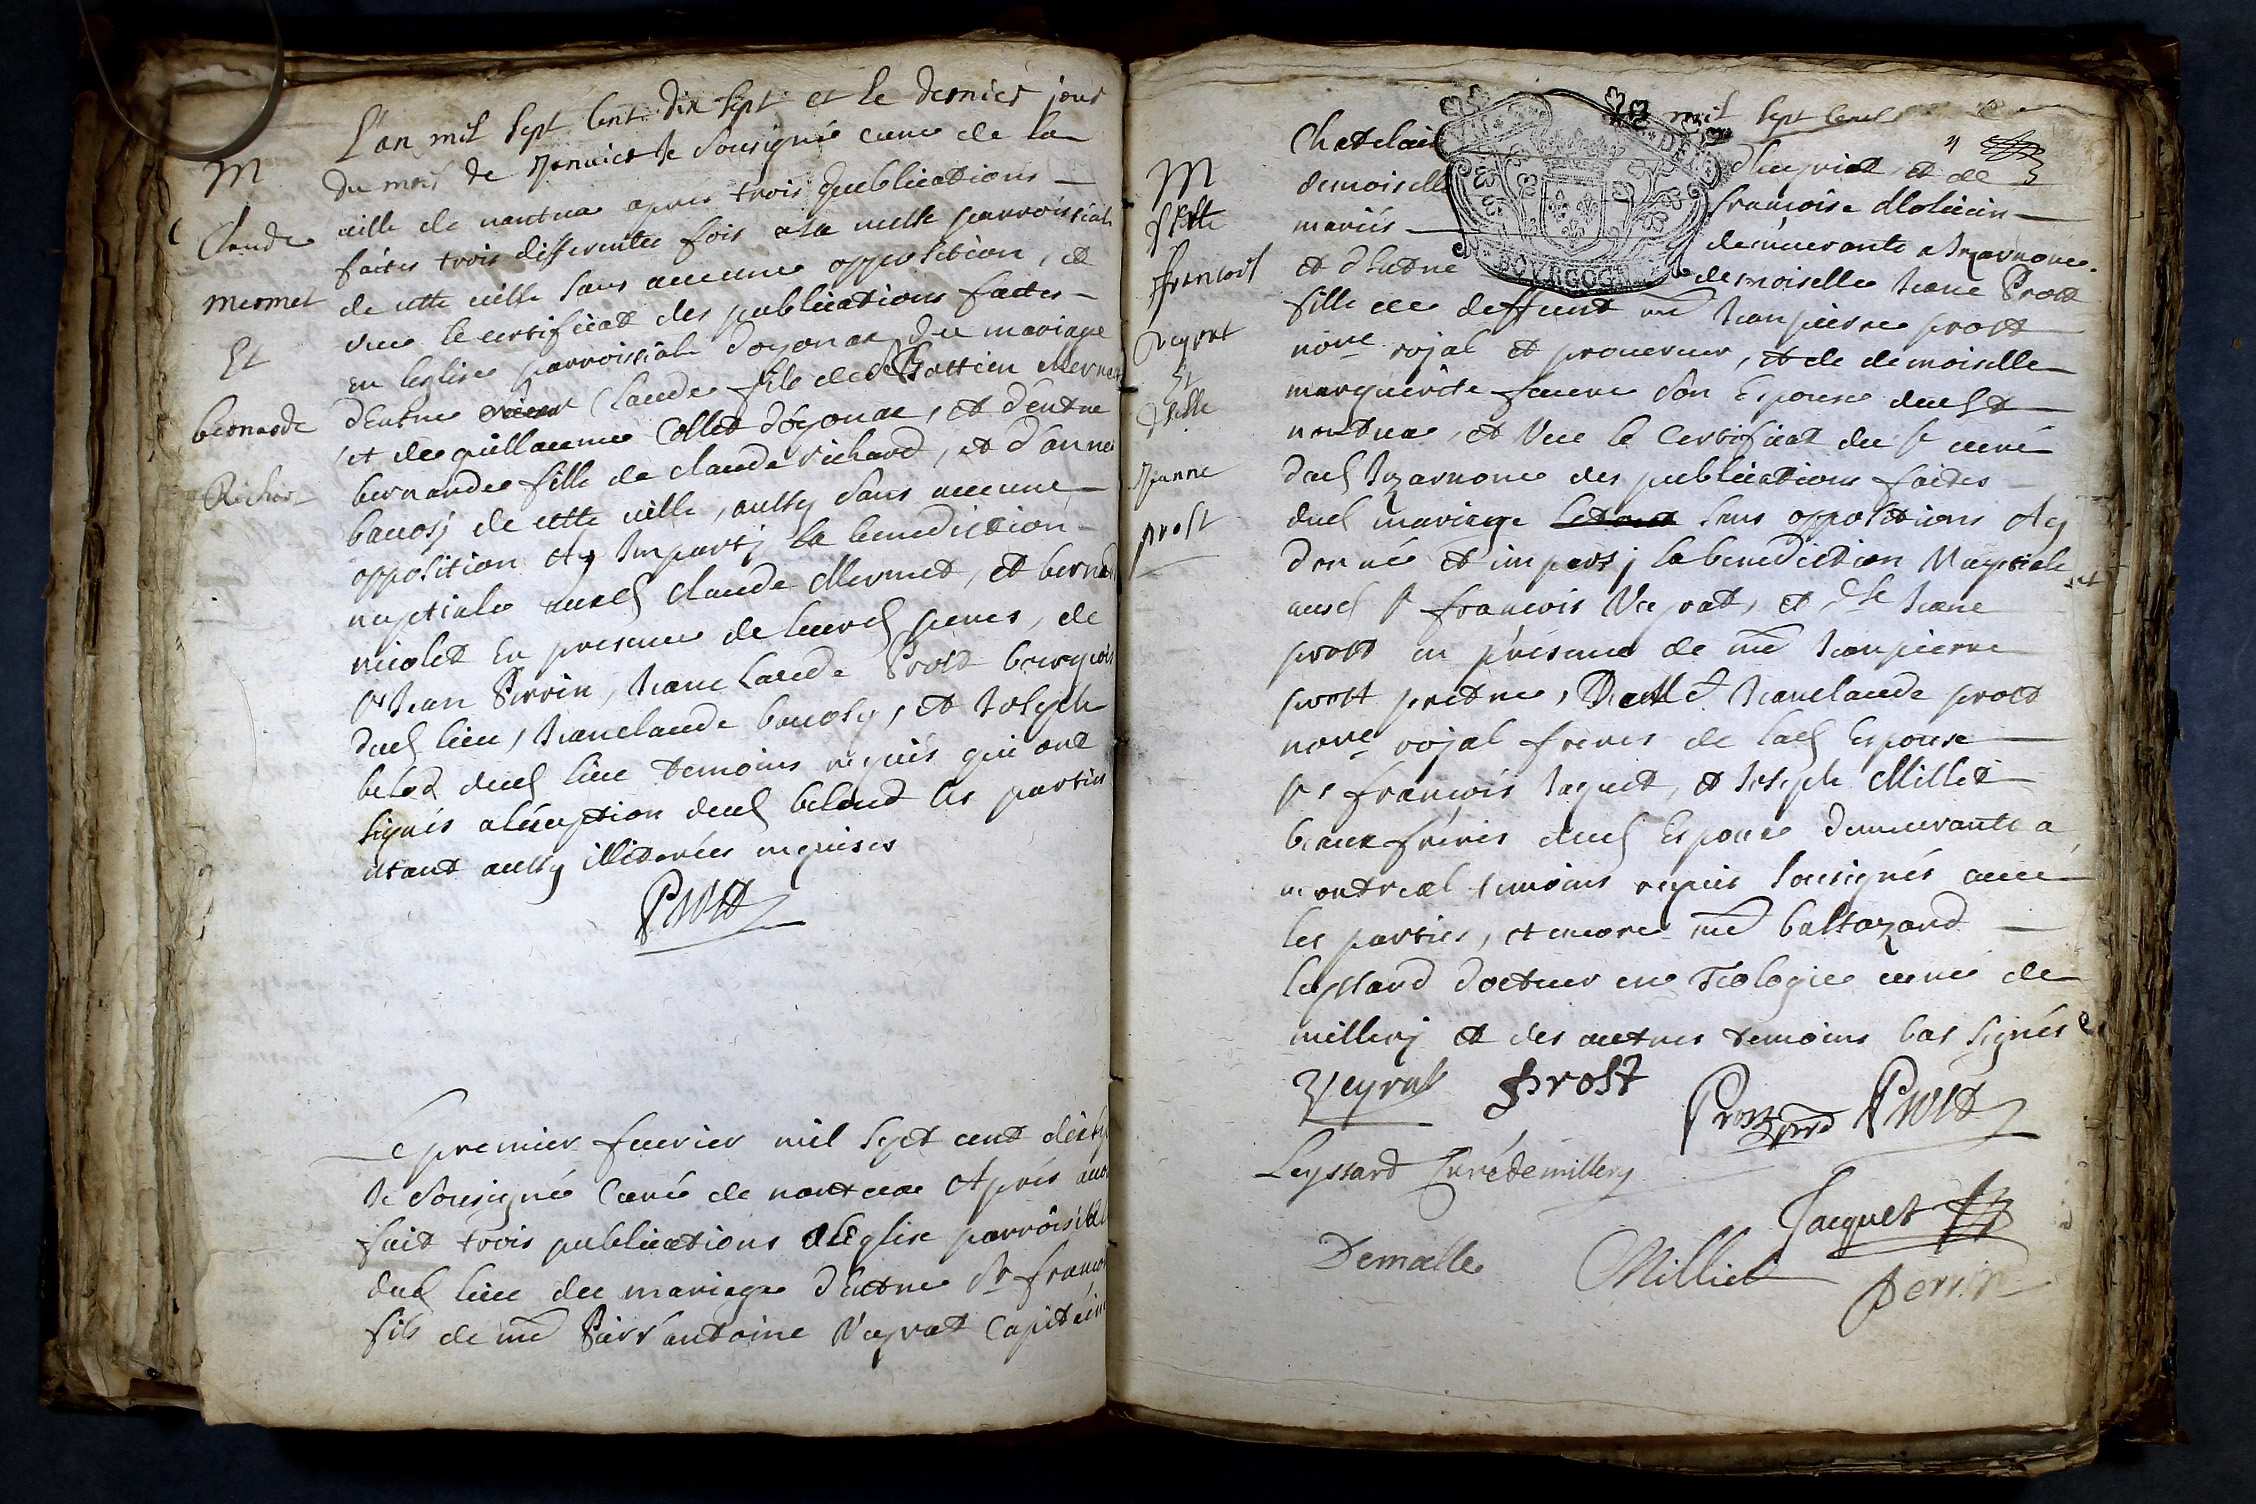 M
Claude
mermet
Et
bernarde
Richard
L'an mil sept cent dix sept et le dernier jour
du mois de Janvier Je sousigné curé de la
ville de nantua apres trois publications
faites trois differentes fois a la messe parroissiale
de cette ville sans aucune opposition, et
veu le certificat des publications faites
en leglise parroissiale doyonax du mariage
dEntre Claude fils de Bastien Mermet
et de guillaume Collet d'oyonax, et d'entre
bernarde fille de claude richard, et d'anne
bauosj de cette ville, aussy sans aucune
opposition Ay Imparty la benediction
nuptiale auxd claude Mermet, et bernard
nicolet En presence de leurd peres, de
Jean Perrin, Jean Claude Prost bourgois
dud lieu, Jeanclaude bauosy, et Joseph
belod dud lieu temoins requis qui ont
signés a léxeption dud beloud les parties
etant aussy illiterées enquises
Prost
Le premier feurier mil sept cent dixsept
Je sousigné Curé de nantua Aprés auoir
fait trois publications a lEglise parroissiale
dud lieu du mariage dEntre Sr francois
fils de me Pierr'antoine Veyrat Capitaine
M
francois
Veyrat
Et
Jeanne
prost
mil sept cent
Chatelain
dheyriat, et de
demoiselle
francoise Molliain
mariés
demeurants a Izarnore
et d'Entre
demoiselle Jeane Prost
fille de deffunt me Jeanpierre prost
nore royal et procureur, et de demoiselle
marguerite faure son Epouse dud
nantua, et Veu le Certificat du sr curé
dud Izarnore des publications faites
dud mariage sans oppositions Ay
donné et imparty la benediction Nuptiale
ausd sr francois Veyrat, et dlle Jeane
prost en présence de me Jeanpierre
prost pretre, Jeanclaude prost
nore royal freres de lad Espouse
srs francois Jaquet, et Joseph Milliet
beaux freres dud Espoux demeurants a
montreal temoins requis sousignés auec
les parties, et encore me baltazard
Leyssard docteur en Téologie curé de
millery et des autres temoins bas signés
Veyrat prost
Prost prd Prost
Leyssard Curé de millery
Jacquet
Demalle Milliet
Perrin
BOURGOGNE